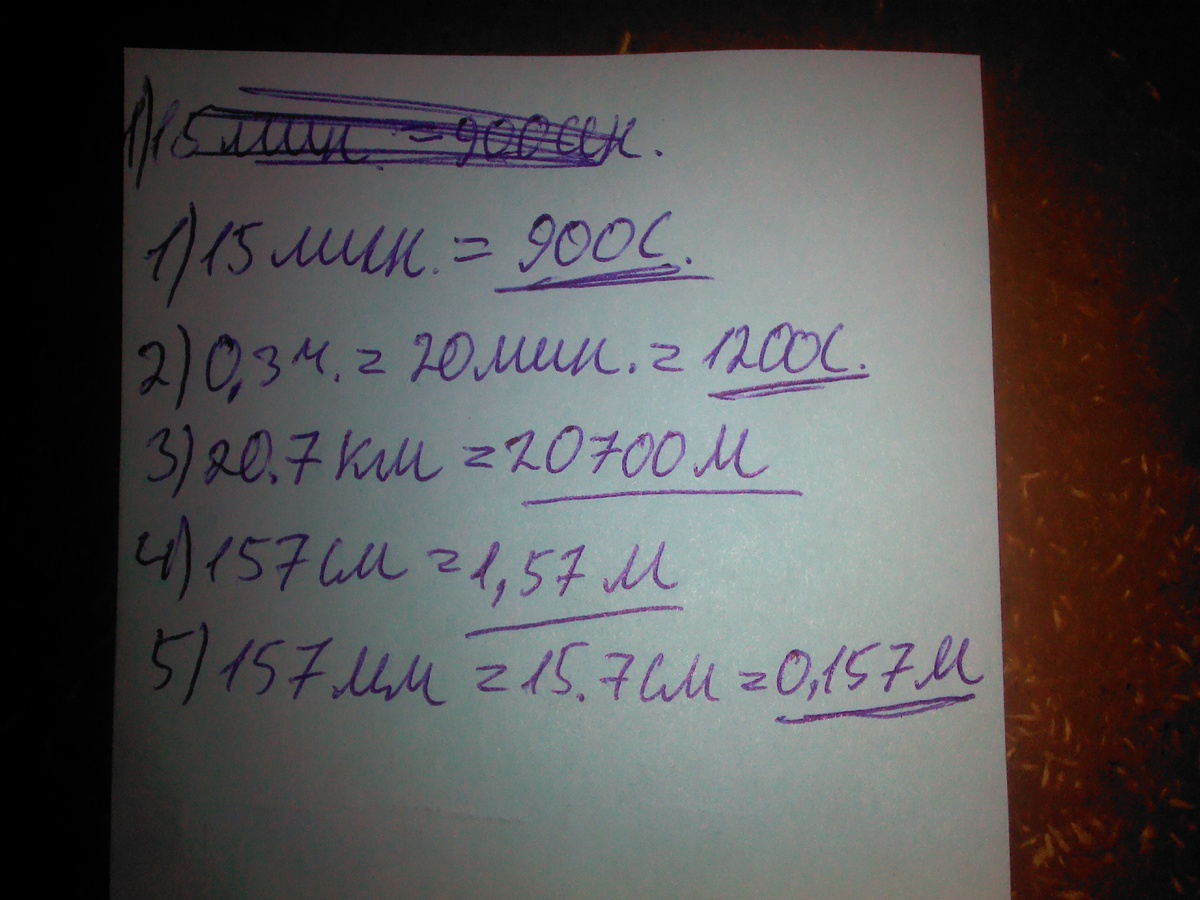 1) 15 мин. = 900сек.
1) 15 мин. = 900с.
2) 0,3 ч. = 20 мин. = 1200с.
3) 20.7 км = 20700 м
4) 157 см = 1,57 м
5) 157 мм = 15.7 см = 0,157 м